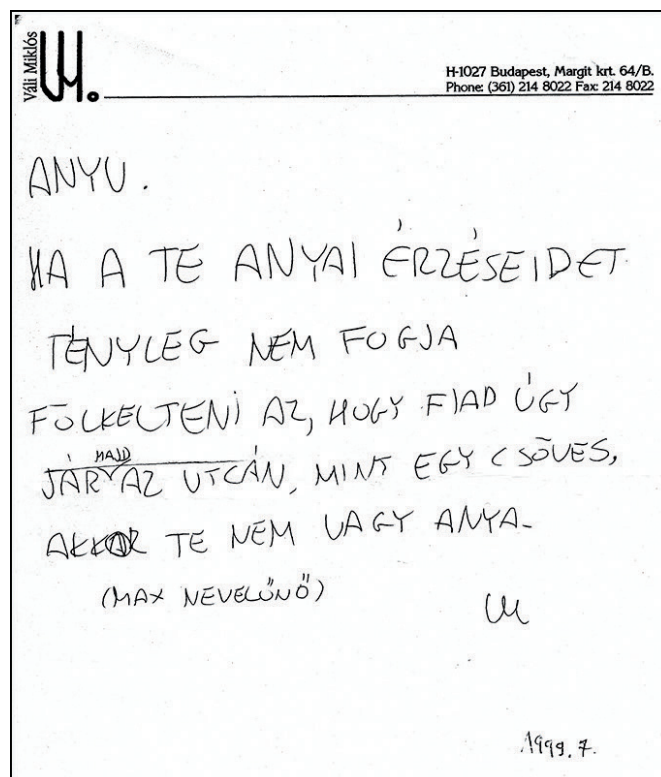 Váli Miklós
H-1027 Budapest, Margit krt. 64/B.
Phone: (361) 214 8022 Fax: 214 8022
ANYU.
HA A TE ANYAI ÉRZÉSEIDET
TÉNYLEG NEM FOGJA
FÖLKELTENI AZ, HOGY FIAD ÚGY
JÁR MAJD AZ UTCÁN, MINT EGY CSÖVES,
AKKOR TE NEM VAGY ANYA.
(MAX NEVELŐNŐ)
VM
1999. 7.